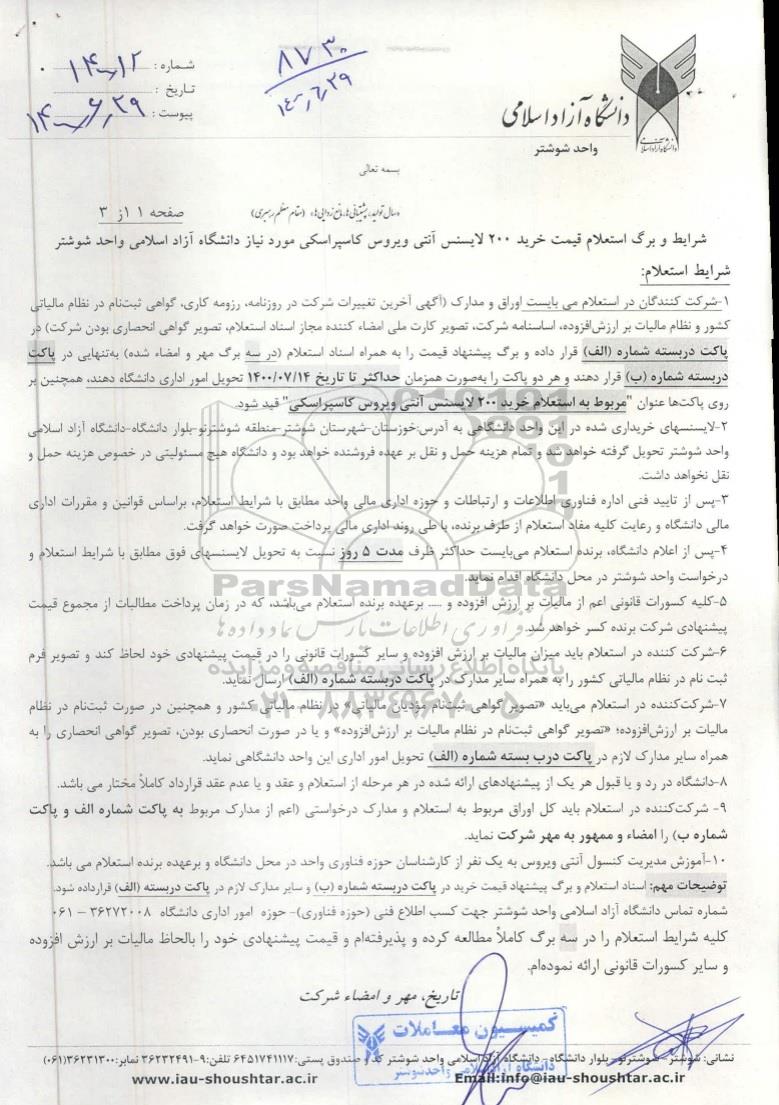 ۸۷۳۰
۱۴۰۰٫۶٫۲۹
شماره :
تاریخ :
پیوست :
۱۴۰۰٫۶٫۲۹
دانشگاه آزاد اسلامی
واحد شوشتر
بسمه تعالی
«سال تولید، پشتیبانی‌ها، مانع زدایی‌ها» (مقام معظم رهبری)
صفحه ۱ از ۳
شرایط و برگ استعلام قیمت خرید ۲۰۰ لایسنس آنتی ویروس کاسپراسکی مورد نیاز دانشگاه آزاد اسلامی واحد شوشتر
شرایط استعلام:
۱-شرکت کنندگان در استعلام می بایست اوراق و مدارک (آگهی آخرین تغییرات شرکت در روزنامه، رزومه کاری، گواهی ثبت‌نام در نظام مالیاتی
کشور و نظام مالیات بر ارزش‌افزوده، اساسنامه شرکت، تصویر کارت ملی امضاء کننده مجاز اسناد استعلام، تصویر گواهی انحصاری بودن شرکت) در
پاکت دربسته شماره (الف) قرار داده و برگ پیشنهاد قیمت را به همراه اسناد استعلام (در سه برگ مهر و امضاء شده) به‌تنهایی در پاکت
دربسته شماره (ب) قرار دهند و هر دو پاکت را به‌صورت همزمان حداکثر تا تاریخ ۱۴۰۰/۰۷/۱۴ تحویل امور اداری دانشگاه دهند، همچنین بر
روی پاکت‌ها عنوان "مربوط به استعلام خرید ۲۰۰ لایسنس آنتی ویروس کاسپراسکی" قید شود.
۲-لایسنسهای خریداری شده در این واحد دانشگاهی به آدرس:خوزستان-شهرستان شوشتر-منطقه شوشترنو-بلوار دانشگاه-دانشگاه آزاد اسلامی
واحد شوشتر تحویل گرفته خواهد شد و تمام هزینه حمل و نقل بر عهده فروشنده خواهد بود و دانشگاه هیچ مسئولیتی در خصوص هزینه حمل و
نقل نخواهد داشت.
۳-پس از تایید فنی اداره فناوری اطلاعات و ارتباطات و حوزه اداری مالی واحد مطابق با شرایط استعلام، براساس قوانین و مقررات اداری
مالی دانشگاه و رعایت کلیه مفاد استعلام از طرف برنده، با طی روند اداری مالی پرداخت صورت خواهد گرفت.
۴-پس از اعلام دانشگاه، برنده استعلام می‌بایست حداکثر ظرف مدت ۵ روز نسبت به تحویل لایسنسهای فوق مطابق با شرایط استعلام و
درخواست واحد شوشتر در محل دانشگاه اقدام نماید.
ParsNamadData
۵-کلیه کسورات قانونی اعم از مالیات بر ارزش افزوده و ..... برعهده برنده استعلام می‌باشد، که در زمان پرداخت مطالبات از مجموع قیمت
پیشنهادی شرکت برنده کسر خواهد شد.
فرآوری اطلاعات پارس نماد داده ها
۶-شرکت کننده در استعلام باید میزان مالیات بر ارزش افزوده و سایر کسورات قانونی را در قیمت پیشنهادی خود لحاظ کند و تصویر فرم
ثبت نام در نظام مالیاتی کشور را به همراه سایر مدارک در پاکت دربسته شماره (الف) ارسال نماید.
پایگاه اطلاع رسانی مناقصه و مزایده
۰۲۱-۸۸۳۴۹۶۷۰-۵
۷-شرکت‌کننده در استعلام می‌باید «تصویر گواهی ثبت‌نام مؤدیان مالیاتی» در نظام مالیاتی کشور و همچنین در صورت ثبت‌نام در نظام
مالیات بر ارزش‌افزوده؛ «تصویر گواهی ثبت‌نام در نظام مالیات بر ارزش‌افزوده» و یا در صورت انحصاری بودن، تصویر گواهی انحصاری را به
همراه سایر مدارک لازم در پاکت درب بسته شماره (الف) تحویل امور اداری این واحد دانشگاهی نماید.
۸-دانشگاه در رد و یا قبول هر یک از پیشنهادهای ارائه شده در هر مرحله از استعلام و عقد و یا عدم عقد قرارداد کاملاً مختار می باشد.
۹- شرکت‌کننده در استعلام باید کل اوراق مربوط به استعلام و مدارک درخواستی (اعم از مدارک مربوط به پاکت شماره الف و پاکت
شماره ب) را امضاء و ممهور به مهر شرکت نماید.
۱۰-آموزش مدیریت کنسول آنتی ویروس به یک نفر از کارشناسان حوزه فناوری واحد در محل دانشگاه و برعهده برنده استعلام می باشد.
توضیحات مهم: اسناد استعلام و برگ پیشنهاد قیمت خرید در پاکت دربسته شماره (ب) و سایر مدارک لازم در پاکت دربسته (الف) قرارداده شود.
شماره تماس دانشگاه آزاد اسلامی واحد شوشتر جهت کسب اطلاع فنی (حوزه فناوری)- حوزه امور اداری دانشگاه ۳۶۲۷۲۰۰۸ – ۰۶۱
کلیه شرایط استعلام را در سه برگ کاملاً مطالعه کرده و پذیرفته‌ام و قیمت پیشنهادی خود را بالحاظ مالیات بر ارزش افزوده
و سایر کسورات قانونی ارائه نموده‌ام.
تاریخ، مهر و امضاء شرکت
کمیسیون معاملات
دانشگاه آزاد اسلامی واحد شوشتر
نشانی: شوشتر- شوشترنو- بلوار دانشگاه- دانشگاه آزاد اسلامی واحد شوشتر کد و صندوق پستی:۶۴۵۱۷۴۱۱۱۷ تلفن:۹-۳۶۲۳۲۴۹۱ نمابر:۳۶۲۳۱۳۰۰(۰۶۱)
www.iau-shoushtar.ac.ir Email:info@iau-shoushtar.ac.ir